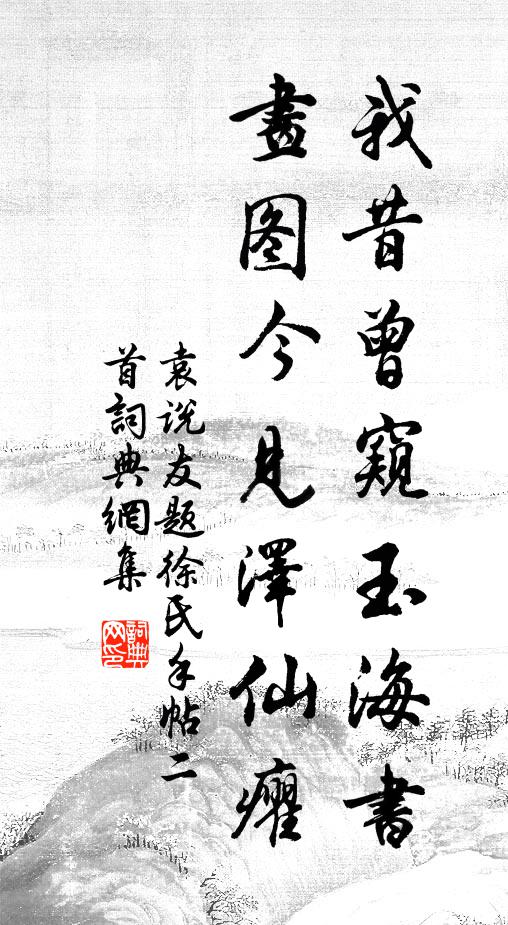 我昔曾窺玉海書
畫图今見澤仙癯
袁说友题徐氏手帖二
首詞典網集
詞典
网印